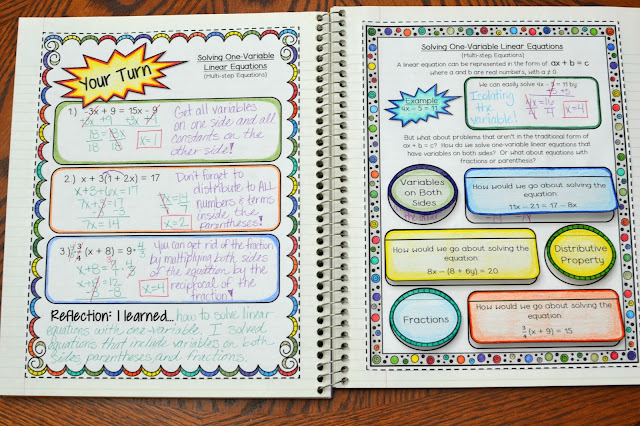 Your Turn
Solving One-Variable
Linear Equations
(Multi-step Equations)
1.) -3x + 9 = 15x - 9
+3x +9 +3x +9
18 = 18x
18 18
x=1
Get all variables
on one side and all
constants on the
other side!
2.) x + 3(1 + 2x) = 17
x+3+6x=17
7x+3=17
-3 -3
7x=14
x=2
Don't forget to
distribute to ALL
numbers & terms
inside the
parentheses!
3.) 4/3 · 3/4 (x + 8) = 9 · 4/3
x+8=
x+8=12
-8
x=4
You can get rid of the fraction
by multiplying both sides
of the equation by the
reciprocal of the
fraction!
Reflection: I learned... how to solve linear
equations with one-variable. I solved
equations that include variables on both
sides, parentheses, and fractions.
Solving One-Variable Linear Equations
(Multi-step Equations)
A linear equation can be represented in the form of ax + b = c
where a and b are real numbers, with a ≠ 0.
Example
4x - 5 = 11
We can easily solve 4x - 5 = 11 by
Isolating
the
variable!
+5 +5
4x=16
4 4
x=4
But what about problems that aren't in the traditional form of
ax + b = c? How do we solve one-variable linear equations that
have variables on both sides? Or what about equations with
fractions or parenthesis?
Variables
on Both
Sides
How would we go about solving the
equation.
11x - 21 = 17 - 8x
How would we go about solving the equation.
8x - (8 + 6y) = 20
Distributive
Property
Fractions
How would we go about solving the
equation.
3/4 (x + 9) = 15